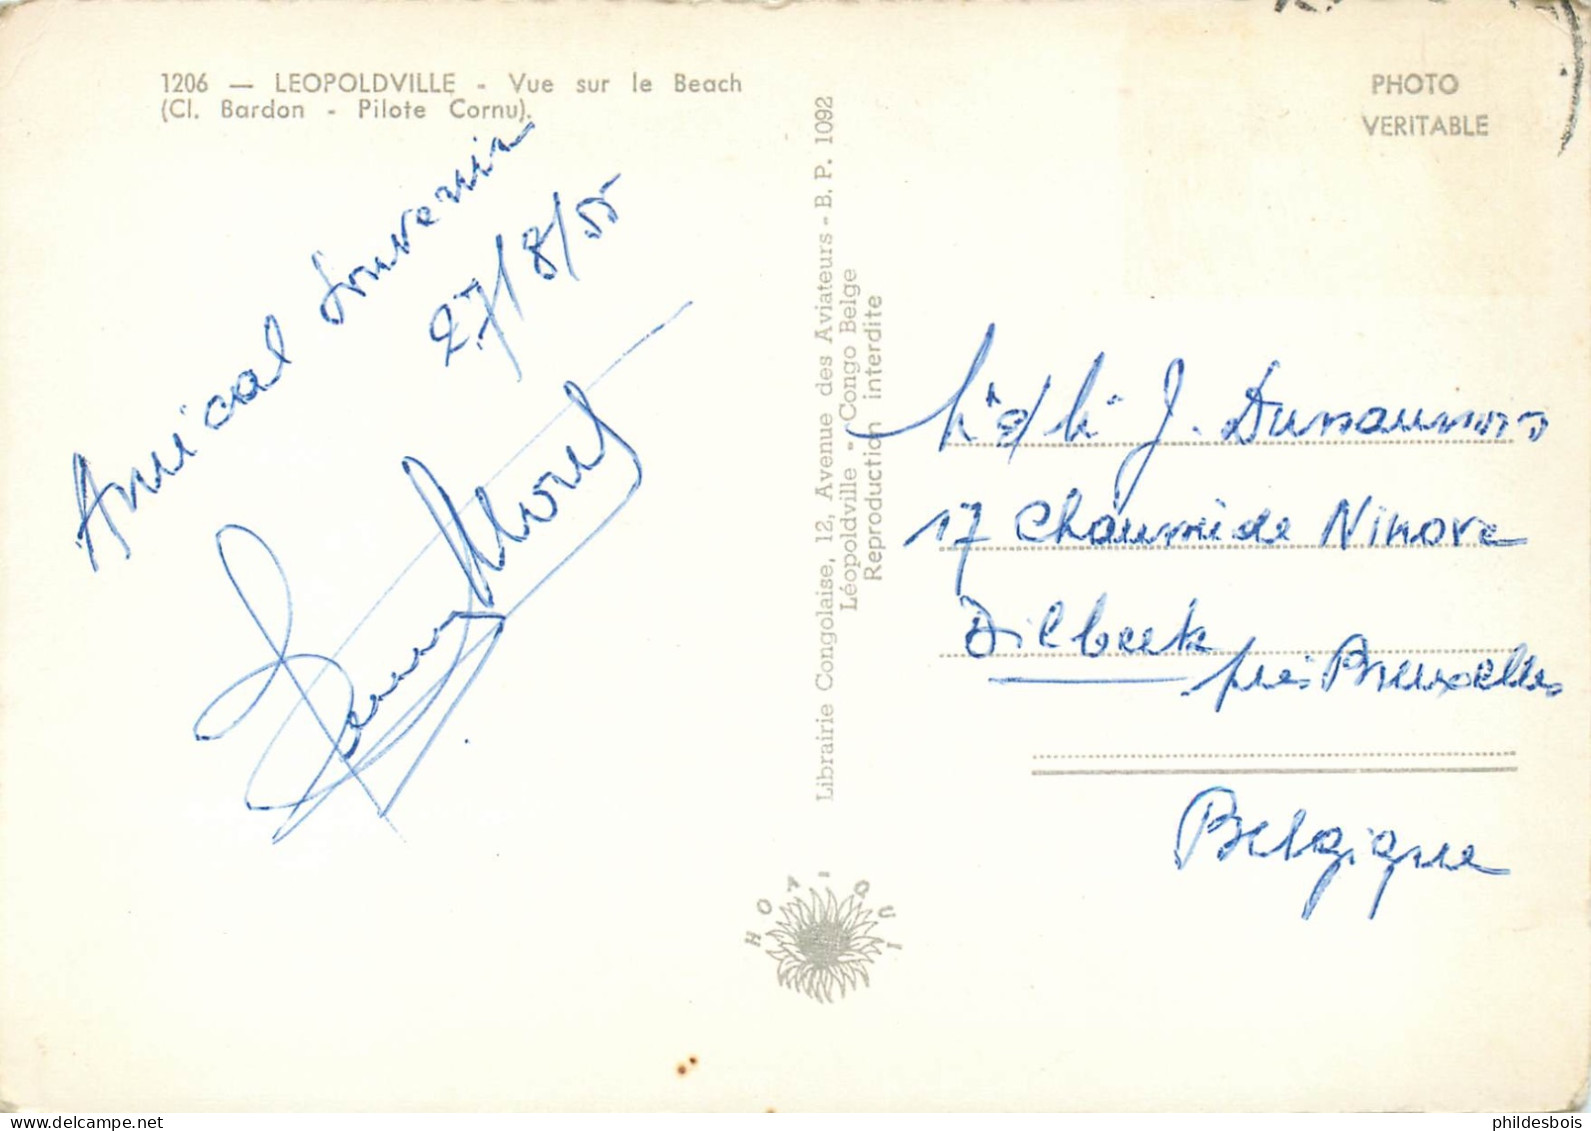 1206 — LEOPOLDVILLE - Vue sur le Beach
(Cl. Bardon - Pilote Cornu).
PHOTO
VERITABLE
Amical Souvenir
27/8/55
Librairie Congolaise, 12, Avenue des Aviateurs - B. P. 1092
Léopoldville - Congo Belge
Reproduction interdite
J.
17 Chaussée de Ninove
Dilbeek
près Bruxelles
Belgique
HOVIQUI
phildesbois